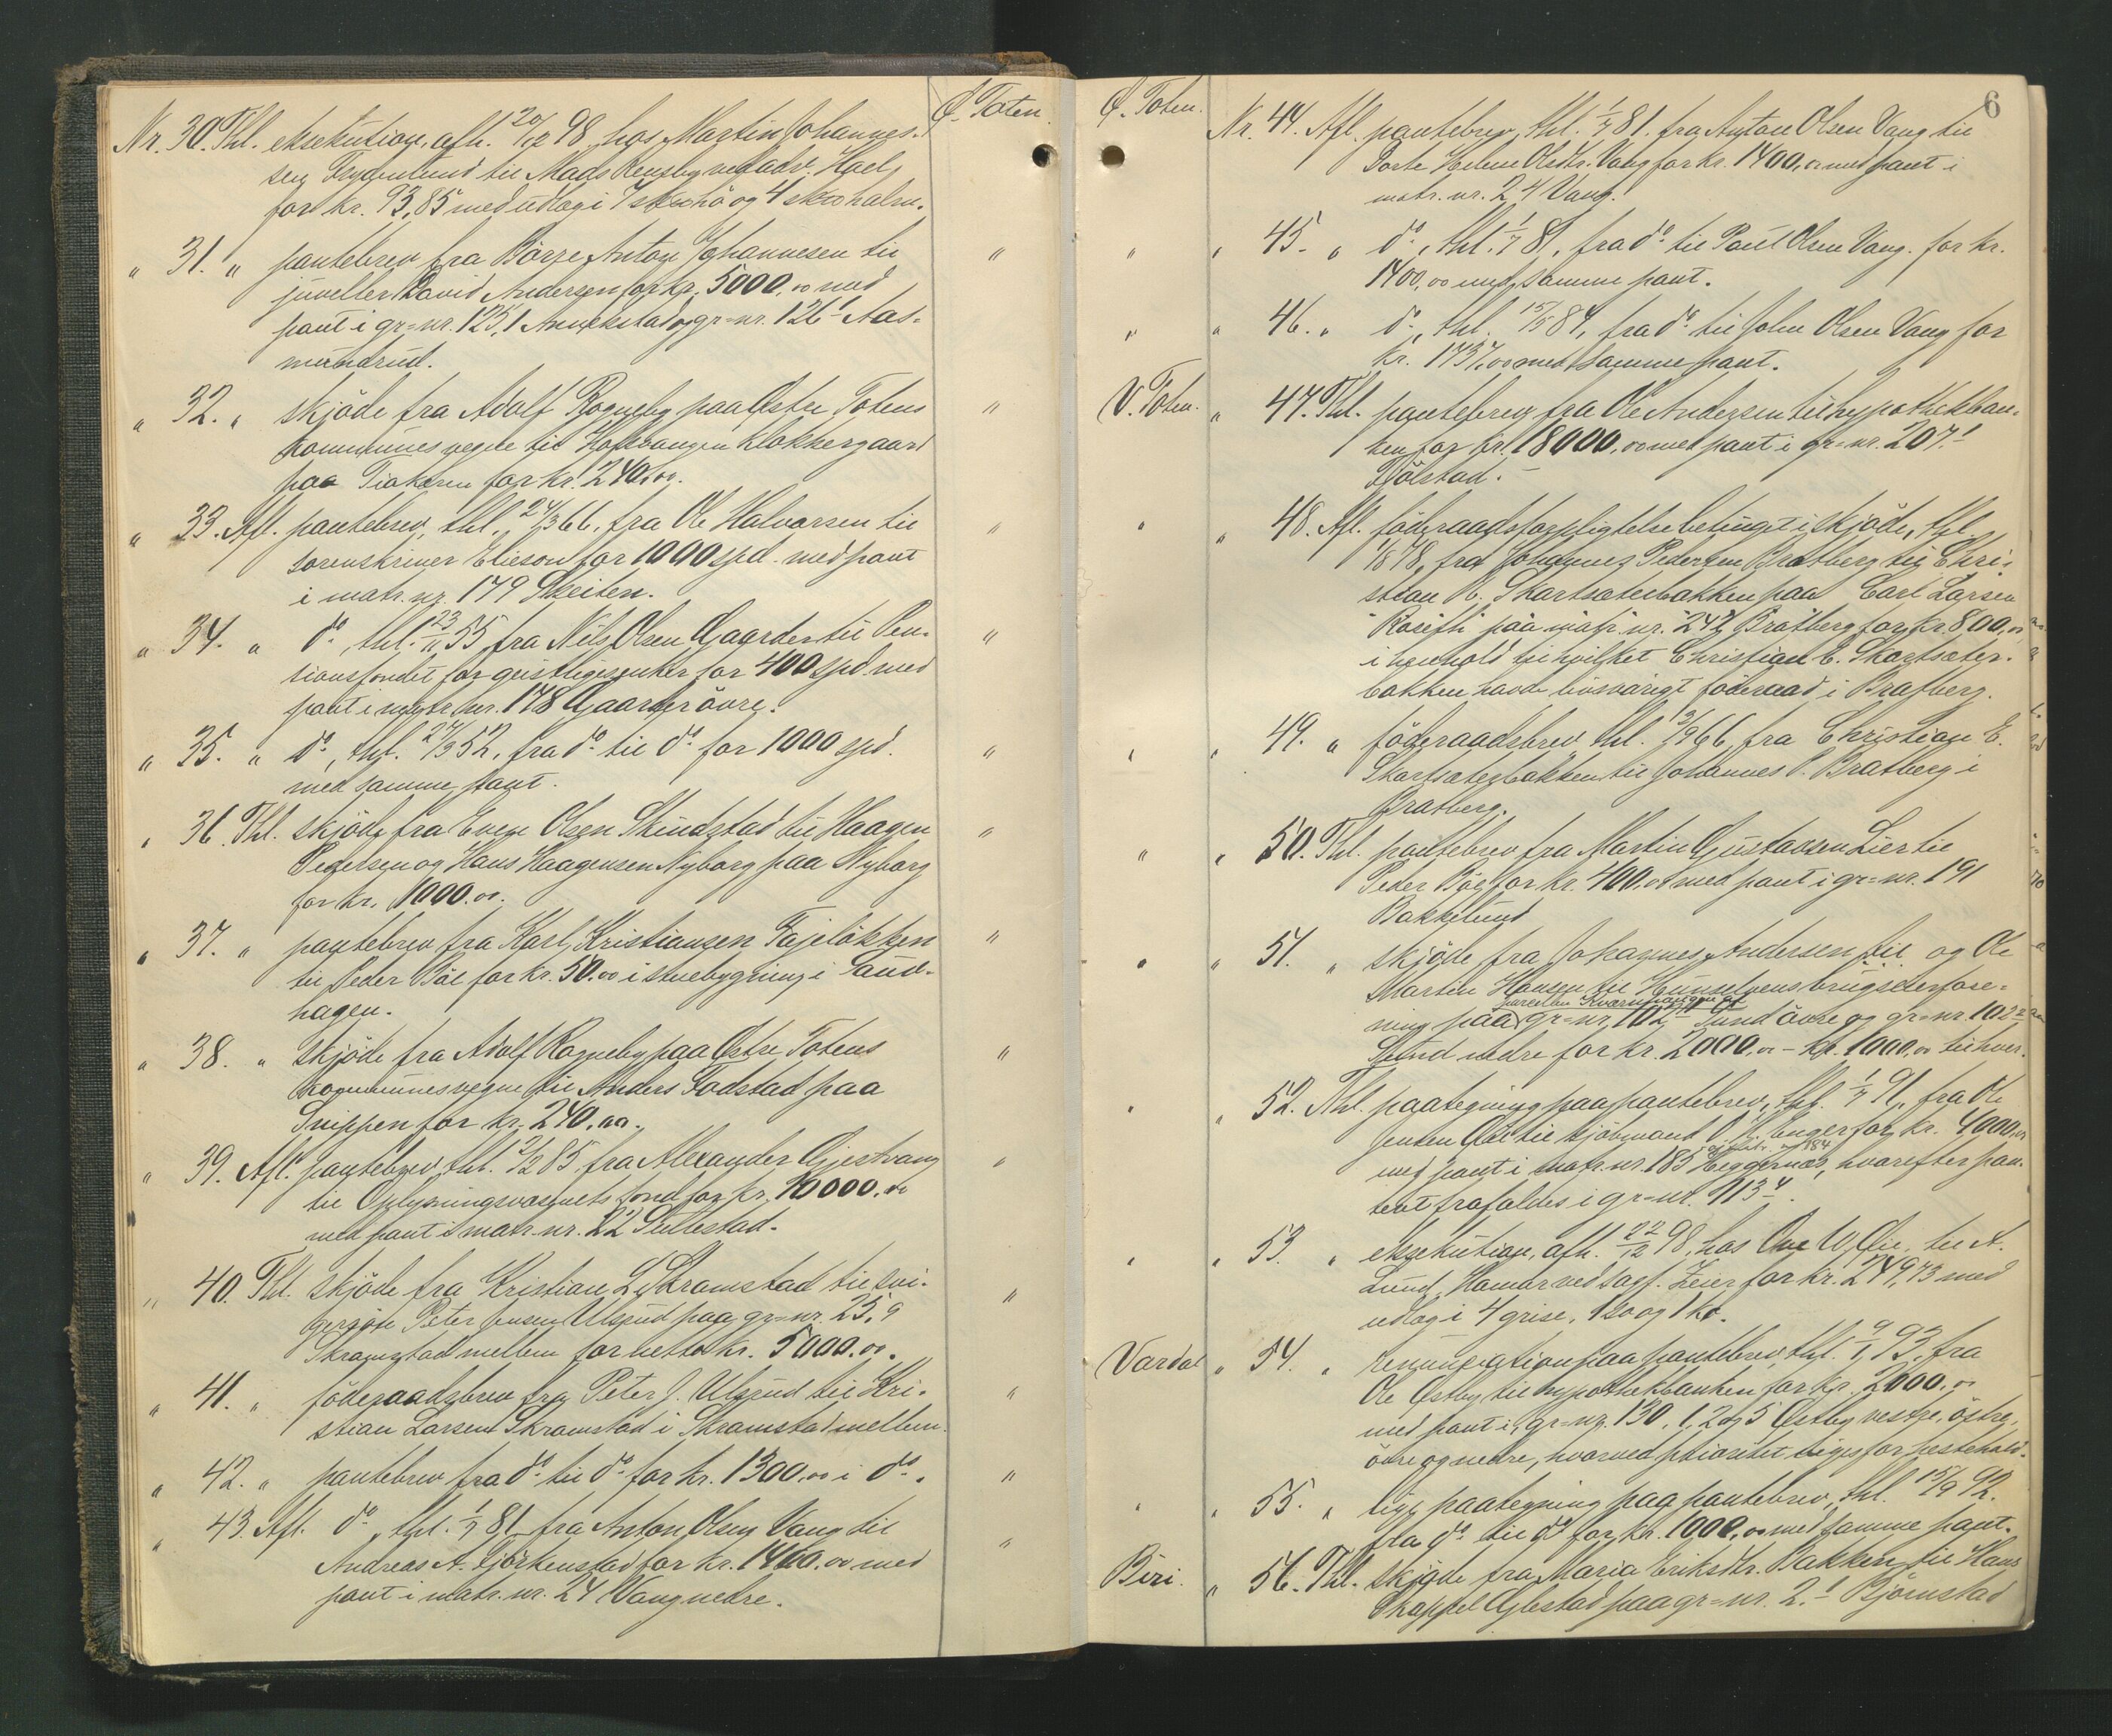 Nr. 30. Thl. eksekution, afh. 20/12 98, hos Martin Johannes- Ø. Toten.
sen til Mads Rensby ved adv. Hoel
for kr. 93,85 med udlæg i 7 skto hö og 4 skto halm.
" 31. " pantebrev fra Börre Anton Johannesen til "
juveller David Andersen for kr. 5000,00 med
pant i gr=nr. 125,1 og gr=nr. 126,1 Aas-
mundrud.
" 32. " skjöde fra Adolf Rogneby paa Östre Totens "
kommunes vegne til Hofsvangen Klokkergaard
paa for kr. 240,00.
" 33. Afl. pantebrev, thl. 24/3 66, fra Ole Halvorsen til "
sorenskriver Elieson for 1000 spd. med pant
i matr. nr. 179 Skeiten.
" 34. " do, thl. 23/11 55, fra Nils Olsen Gaarder til Pen- "
sionsfondet for geistlige enker for 400 spd. med
pant i matr. nr. 178 Gaarder övre.
" 35. " do, thl. 24/9 52, fra do til do for 1000 spd. "
med samme pant.
" 36. Thl. skjöde fra Even Olsen Skindstad til Haagen "
Pedersen og Hans Haagensen Nyborg paa Nyborg
for kr. 1000.00.
" 37. " pantebrev fra Karl Kristiansen Fajelökken "
til Peder Böe for kr. 50.00 i stuebygning i Sand-
hagen.
" 38. " skjöde fra Adolf Rogneby paa Östre Totens "
kommunes vegne til Anders Fodstad paa
Snippen for kr. 240,00.
" 39. Afl. pantebrev, thl. 2/2 85, fra Alexander Gjestvang "
til Oplysningsvæsenets fond for kr. 10000,00
med pant i matr. nr. 22
" 40. Thl. skjöde fra Kristian L. Skramstad til svi- "
gersön Peter Jensen Ulsrud paa gr=nr. 25,9
Skramstad mellem for netto kr. 5000.00.
" 41. " föderaadsbrev fra Peter J. Ulsrud til Kri- "
stian Larsen Skramstad i Skramstad mellem.
" 42. " pantebrev fra do til do for kr. 1300,00 i do. "
" 43. Afl. do, thl. 1/7 81, fra Anton Olsen Vang til "
Andreas A. Björkenstad for kr. 1400.00 med
pant i matr. nr. 24 Vang nedre.
6
Ø. Toten. Nr. 44. Afl. pantebrev, thl. 1/7 81, fra Anton Olsen Vang til
Dorte Helene Olsdtr. Vang for kr. 1400,00 med pant i
matr. nr. 24 Vang.
" " 45. " do, thl. 1/7 81, fra do til Paul Olsen Vang. for kr.
1400,00 med samme pant.
" " 46. " do, thl. 15/5 84, fra do til John Olsen Vang for
kr. 1737,00 med samme pant.
V. Toten. " 47. Thl. pantebrev fra Ole Andersen til hypothekban-
ken for kr. 18000.00 med pant i gr=nr. 207,1
Fjölstad.
" " 48. Afl. föderaadsforpligtelse betinget i skjöde, thl.
1878, fra Johannes Pedersen Bratberg til Chri-
stian E. Skartsæterbakken paa Carl Larsen
paa matr. nr. 242 Bratberg for kr. 800,00,
i henhold til hvilket Christian E. Skartsæter-
bakken havde livsvarigt föderaad i Bratberg.
" " 49. " föderaadsbrev, thl. 66, fra Christian E.
Skartsæterbakken til Johannes P. Bratberg i
Bratberg.
" " 50. Thl. pantebrev fra Martin Gustavsen Lier til
Peder Böe for kr. 400.00 med pant i gr=nr. 191
Bakkelund
" " 51. " skjöde fra Johannes Andersen Lil.... og Ole
Martin Hansen til Hunselvens brugseierfore-
ning paa gr=nr. 102 Sund övre og gr=nr. 102
Sund nedre for kr. 2000,00 - kr. 1000,00 til hver.
" " 52. Thl. paategning paa pantebrev, thl. 1/7 91, fra Ole
Jensen til kjöbmand O. for kr. 4000,00
med pant i matr. nr. 185 Heggernæs, og 184, hvorefter pan-
tet frafaldes i gr=nr. 113,4.
" " 53. " eksekution, afh. 22/12 98, hos Ove til A.
Lund, Hamar ved sagf. Zeier for kr. 249,73 med
udlæg i 4 grise, 1 so og 1 ko.
Vardal " 54. " renunciation paa pantebrev, thl. 9/1 93, fra
Ole Östby til hypothekbanken for kr. 2000.00
med pant i gr=nr. 130, 1, 2 og 5 Östby vestre, östre,
övre og nedre, hvorved prioritet viges for hestehold.
" " 55. " lign. paategning paa pantebrev, thl. 15/9 92.
fra do til do for kr. 1000,00 med samme pant.
Biri. " 56. Thl. skjöde fra Maria Eriksdtr. Bakken til Hans
Skappel Gjlestad paa gr=nr. 2,1 Björnstad